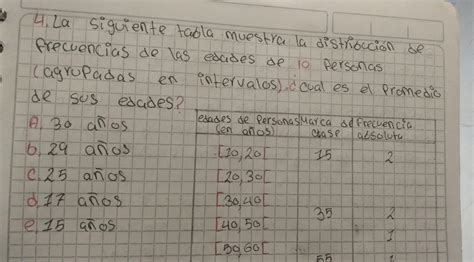 4. La siguiente tabla muestra la distribución de
frecuencias de las edades de 10 personas
(agrupadas en intervalos). ¿cual es el Promedio
de sus edades?
A. 30 años
b. 29 años
c. 25 años
d. 17 años
e. 15 años
edades de Personas Marca de Frecuencia
(en años) clase absoluta
[10,20[ 15 2
[20,30[
[30,40[ 35 2
[40,50[ 1
[50,60[ 55 1